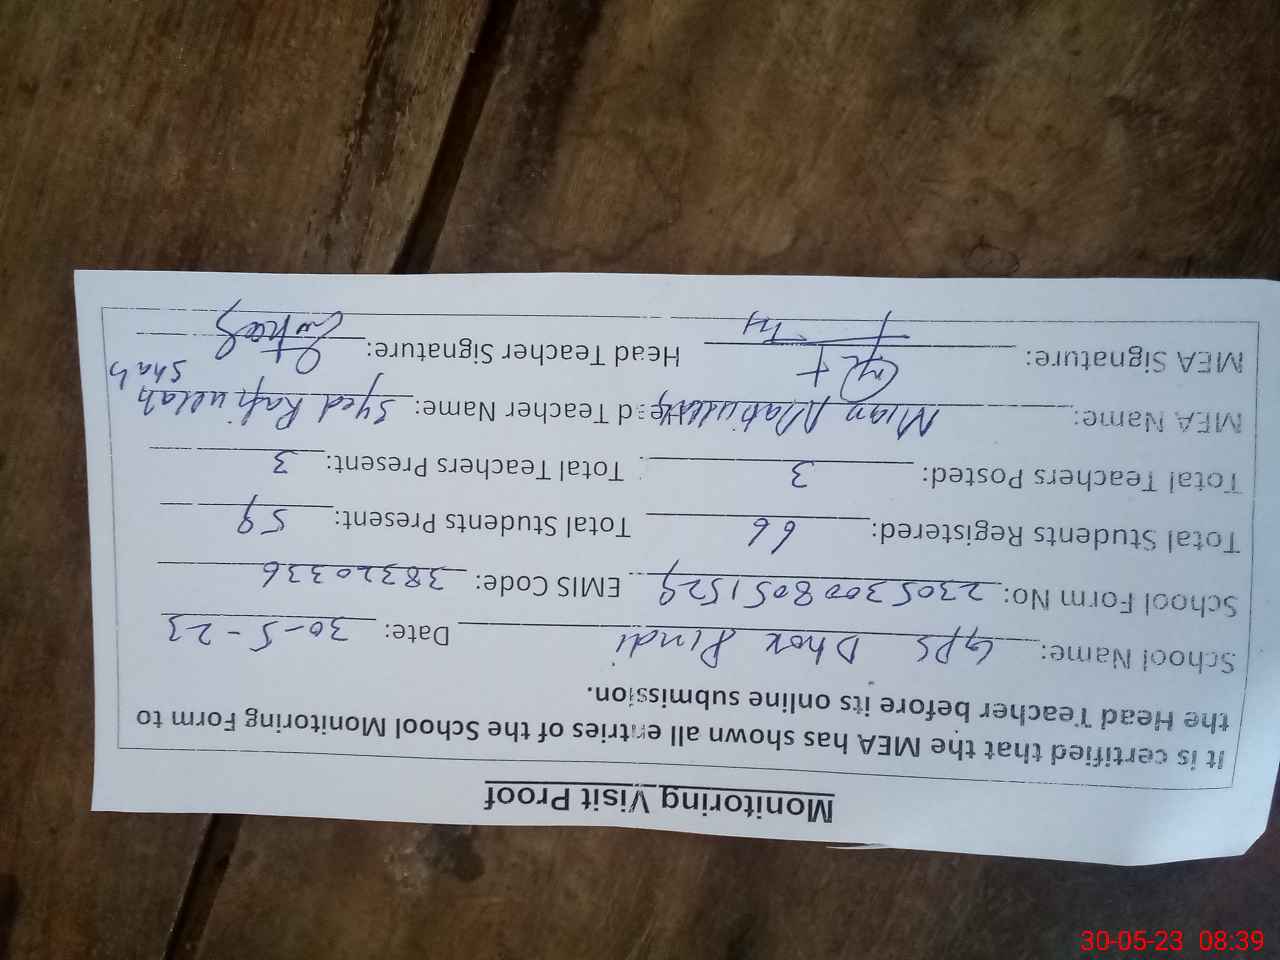 Monitoring Visit Proof
It is certified that the MEA has shown all entries of the School Monitoring Form to
the Head Teacher before its online submission.
School Name: GPS Dhok Pindi Date: 30-5-23
School Form No: 23053008051529 EMIS Code: 38320336
Total Students Registered: 66 Total Students Present: 59
Total Teachers Posted: 3 Total Teachers Present: 3
MEA Name: Mian Head Teacher Name: Syed Rafiullah Shah
MEA Signature: Head Teacher Signature:
30-05-23 08:39